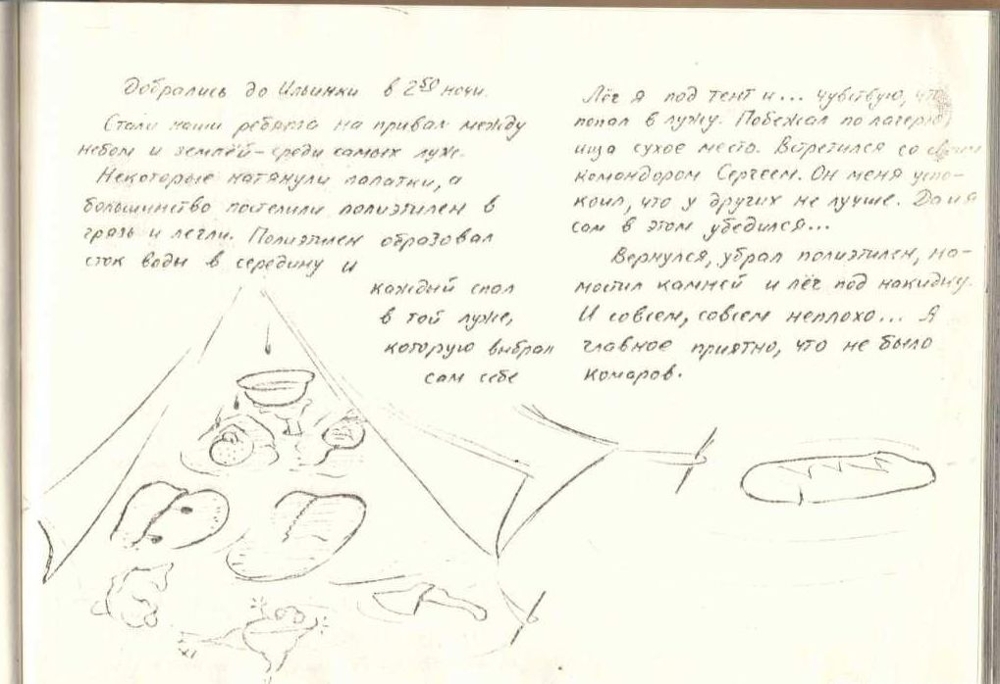 Добрались до Ильинки в 2⁵⁰ ночи.
Стали наши ребята на привал между
небом и землёй – среди самых луж.
Некоторые натянули палатки, а
большинство постелили полиэтилен в
грязь и легли. Полиэтилен образовал
сток воды в середину и
каждый спал
в той луже,
которую выбрал
сам себе
Лёг я под тент и... чувствую, что
попал в лужу. Побежал по лагерю,
ища сухое место. Встретился со своим
командором Сергеем. Он меня успо-
коил, что у других не лучше. Да и я
сам в этом убедился...
Вернулся, убрал полиэтилен, на-
мостил камней и лёг под накидку.
И совсем, совсем неплохо... А
главное приятно, что не было
комаров.